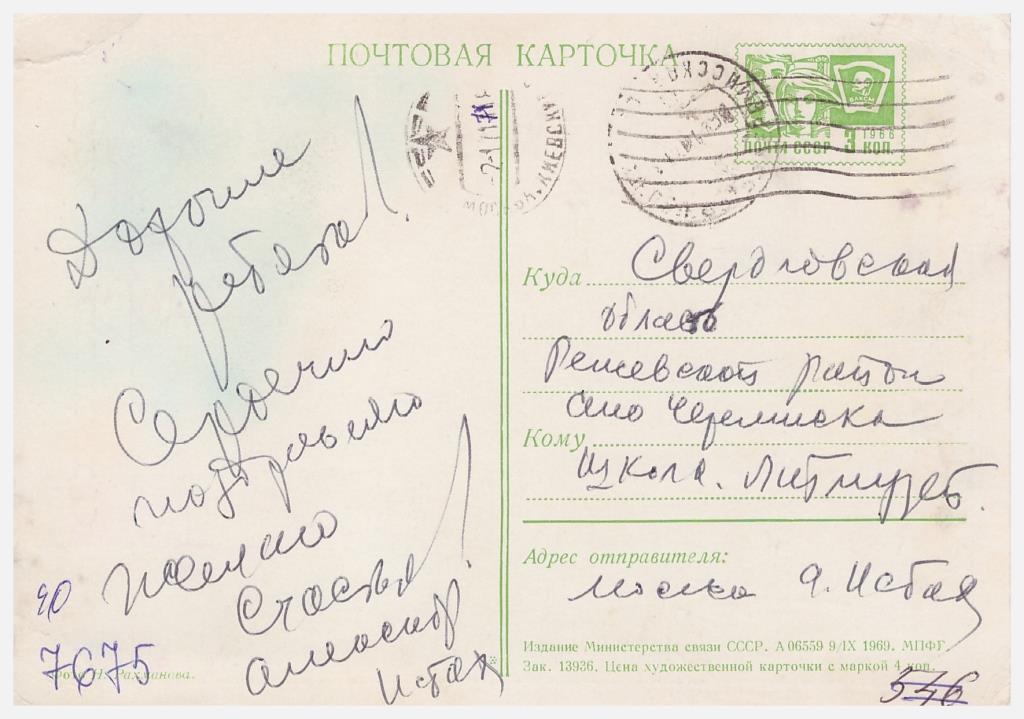 ПОЧТОВАЯ КАРТОЧКА
ПОЧТА СССР
1966
3 КОП
ВЛКСМ
Дорогие
ребята!
Сердечно
поздравляю
желаю
счастья!
Александр
Исбах
90
7675
Фото Н. Рахманова.
Куда Свердловская
область
Режевской район
село Черемисска
Кому
Школа. Литмузей.
Адрес отправителя:
Москва А. Исбах
Издание Министерства связи СССР. А 06559 9/IX 1969. МПФГ.
Зак. 13936. Цена художественной карточки с маркой 4 коп.
546